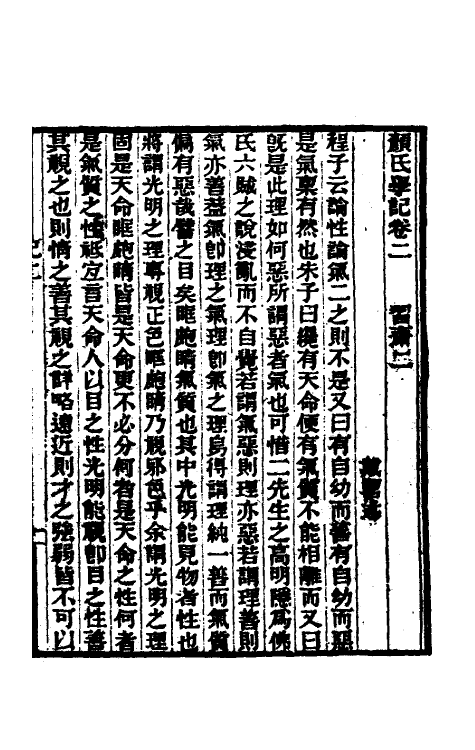 顏氏學記卷二　習齋二
戴望述
程子云論性論氣二之則不是又曰有自幼而善有自幼而惡
是氣稟有然也朱子曰纔有天命便有氣質不能相離而又曰
旣是此理如何惡所謂惡者氣也可惜二先生之高明隱爲佛
氏六賊之說浸亂而不自覺若謂氣惡則理亦惡若謂理善則
氣亦善蓋氣卽理之氣理卽氣之理烏得謂理純一善而氣質
偏有惡哉譬之目矣眶皰睛氣質也其中光明能見物者性也
將謂光明之理專視正色眶皰睛乃視邪色乎余謂光明之理
固是天命眶皰睛皆是天命更不必分何者是天命之性何者
是氣質之性祗宜言天命人以目之性光明能視卽目之性善
其視之也則情之善其視之詳略遠近則才之强弱皆不可以